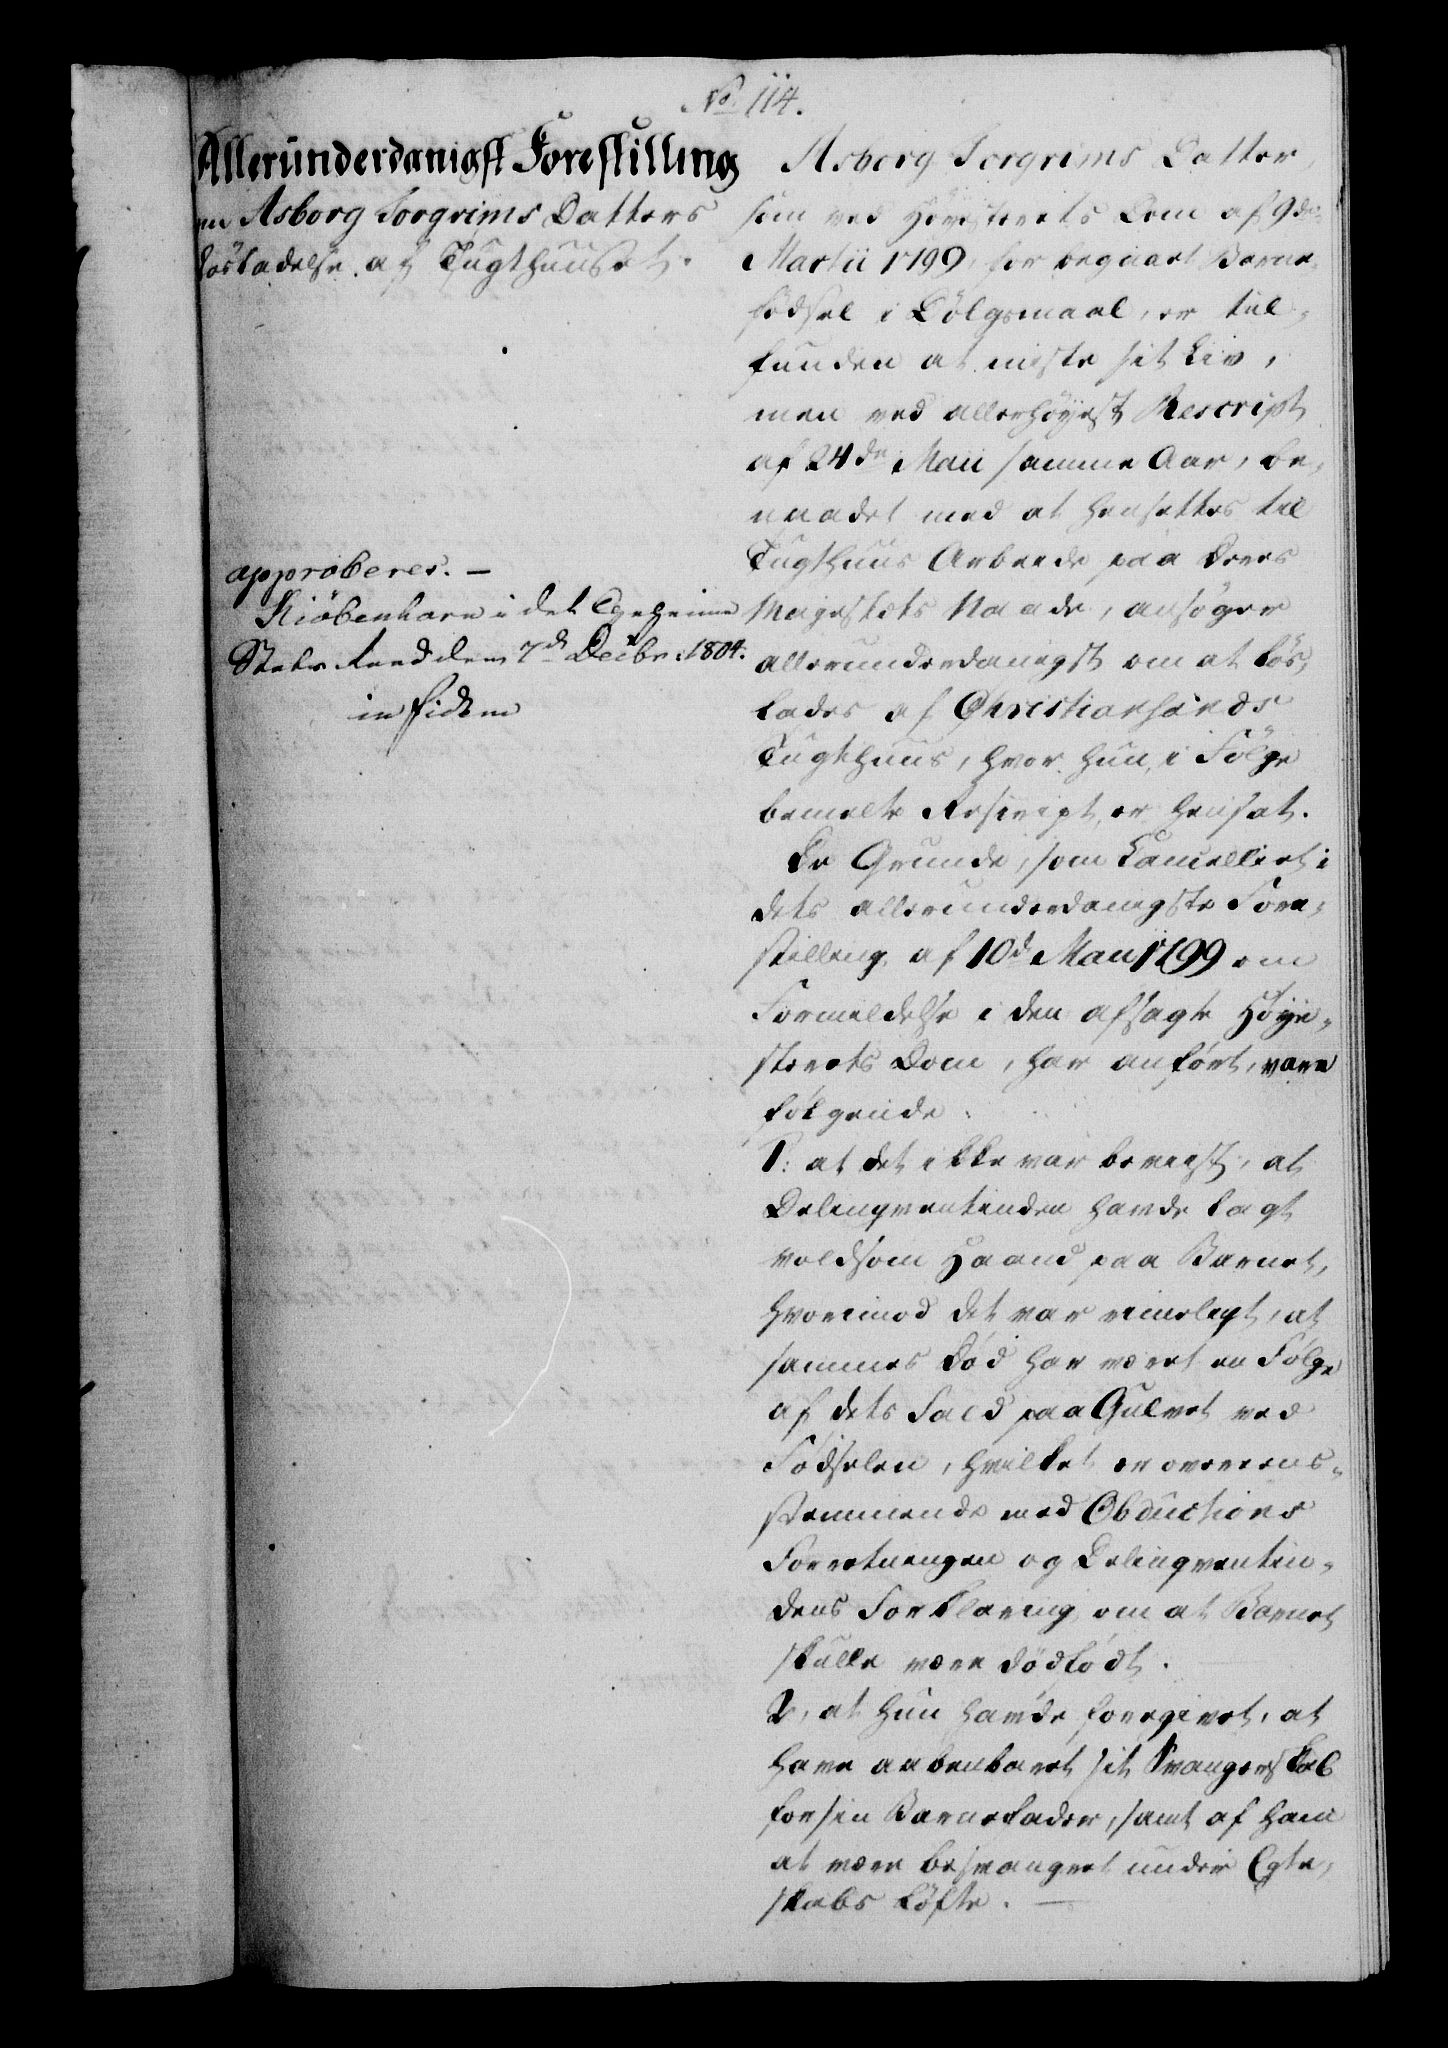 No 114.
Allerunderdanigst Forestilling
om Asborg Torgrims Datters
Løsladelse af Tugthuuset.
approberes. —
Kiöbenhavn i det Geheime
Stats Raad den 7d Decbr. 1804.
in fidem
Asborg Torgrims Datter,
som ved Høyesterets Dom af 9de
Martii 1799, for begaaet Barne-
fødsel i Dølgsmaal, er til-
funden at miste sit Liv,
men ved allerhøyest Rescript
af 24de Maii samme Aar, be-
naadet med at hensættes til
Tugthuus Arbeide paa Deres
Majestæts Naade, ansøger
allerunderdanigst om at løs-
lades af Christiansands
Tugthuus, hvor hun, i Følge
bemelte Rescript, er hensat.
De Grunde, som Cancelliet i
dets allerunderdanigste Fore-
stilling af 10d Maii 1799 om
Formildelse i den afsagte Høye-
sterets Dom, har anført, vare
følgende:
1: at det ikke var beviist, at
Delinqventinden havde lagt
voldsom Haand paa Barnet,
hvorimod det var rimeligt, at
sammes Død har været en Følge
af dets Fald paa Gulvet ved
Fødselen, hvilket er overeens-
stemmende med Obductions
Forretningen og Delinqventin-
dens Forklaring om at Barnet
skulle være dødfødt.
2, at hun havde foregivet, at
have aabenbaret sit Svangerskab
for sin Barnefader, samt af ham
at være besvangret under Egte-
skabs Løfte. —